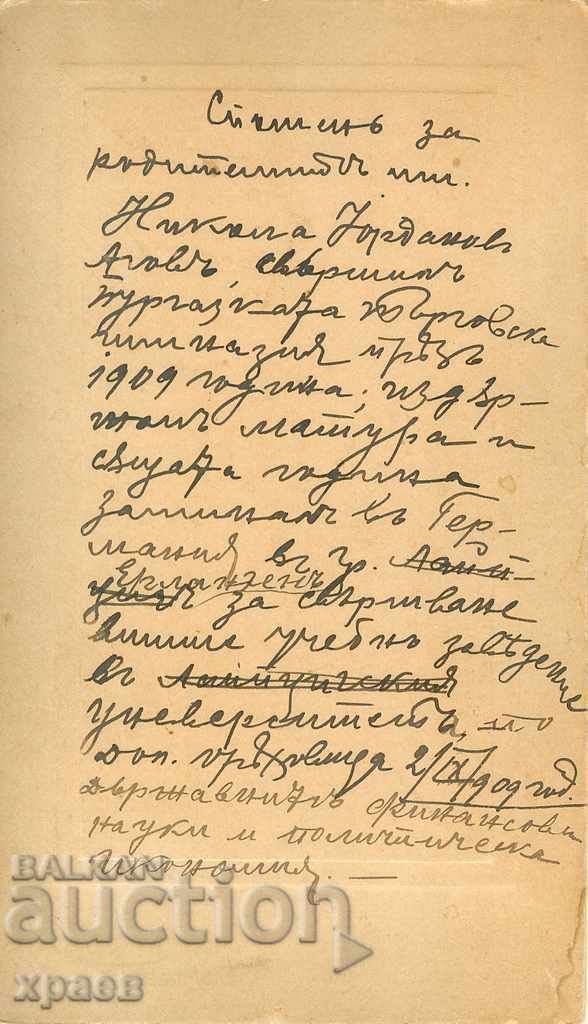 Споменъ за
родителитѣ ми.
Никола Йорданов
Аговъ, свършилъ
Бургазката търговска
гимназия прѣзъ
1909 година, издър-
жалъ матура и
сѫщата година
заминалъ въ Гер-
мания въ гр. Лайп-
Ерлангенъ
цигъ за свършване
висше учебно завѣдение
въ Лайпцигския
университетъ, по
Доп. Орѣховица 2/IX/909 год.
държавнитѣ финансови
науки и политическа
икономия. —
BALKAN
auction
храев